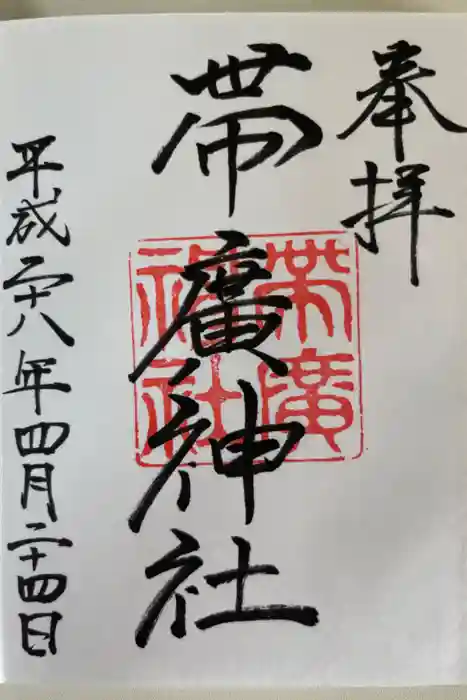 奉拝
帯廣神社
帯廣神社
平成二十八年四月二十四日